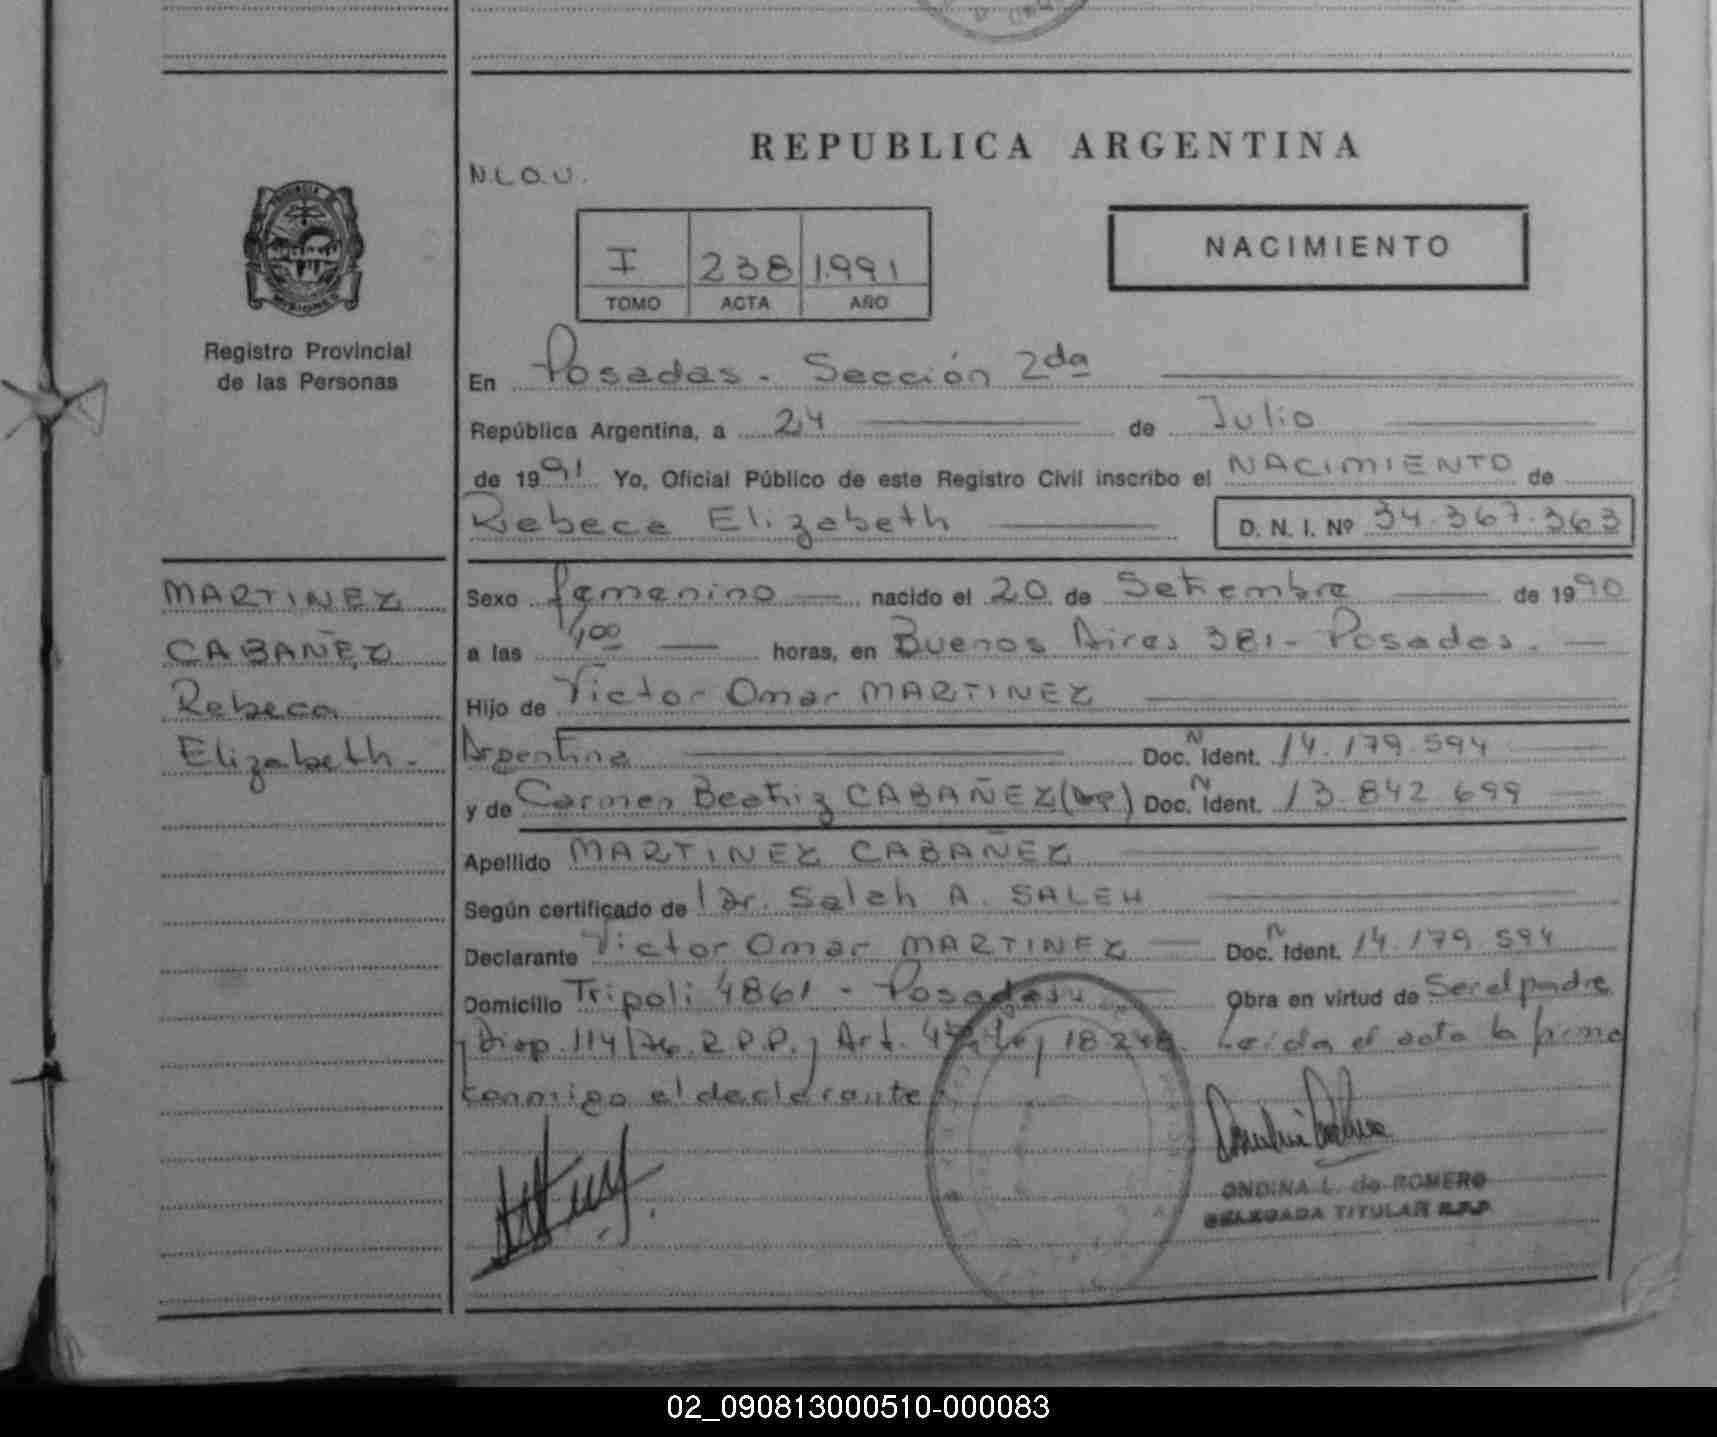 REPUBLICA ARGENTINA
N.L.O.U.
NACIMIENTO
I 238 1.991
TOMO ACTA AÑO
Registro Provincial
de las Personas
En Posadas. Sección 2da
República Argentina, a 24 de Julio
de 1991 Yo, Oficial Público de este Registro Civil inscribo el NACIMIENTO de
Rebeca Elizabeth D. N. I. Nº 34.367.363
MARTINEZ
CABAÑEZ
Rebeca
Elizabeth.
Sexo femenino nacido el 20 de Setiembre de 1990
a las 4,00 horas, en Buenos Aires 381- Posadas.
Hijo de Victor Omar MARTINEZ
Argentina Doc. N Ident. 14.179.594
y de Carmen Beatriz CABAÑEZ (Arg) Doc. N Ident. 13.842.699
Apellido MARTINEZ CABAÑEZ
Según certificado de Dr. Saleh A. SALEH
Declarante Victor Omar MARTINEZ Doc. N Ident. 14.179.594
Domicilio Tripoli 4861 - Posadas Obra en virtud de Ser el padre
y Disp. 114/76. R.P.P. y Art. Ley 18.248. Leida el acta la firma
conmigo el declarante
ONDINA L. de ROMERO
DELEGADA TITULAR R.P.P.
02_090813000510-000083